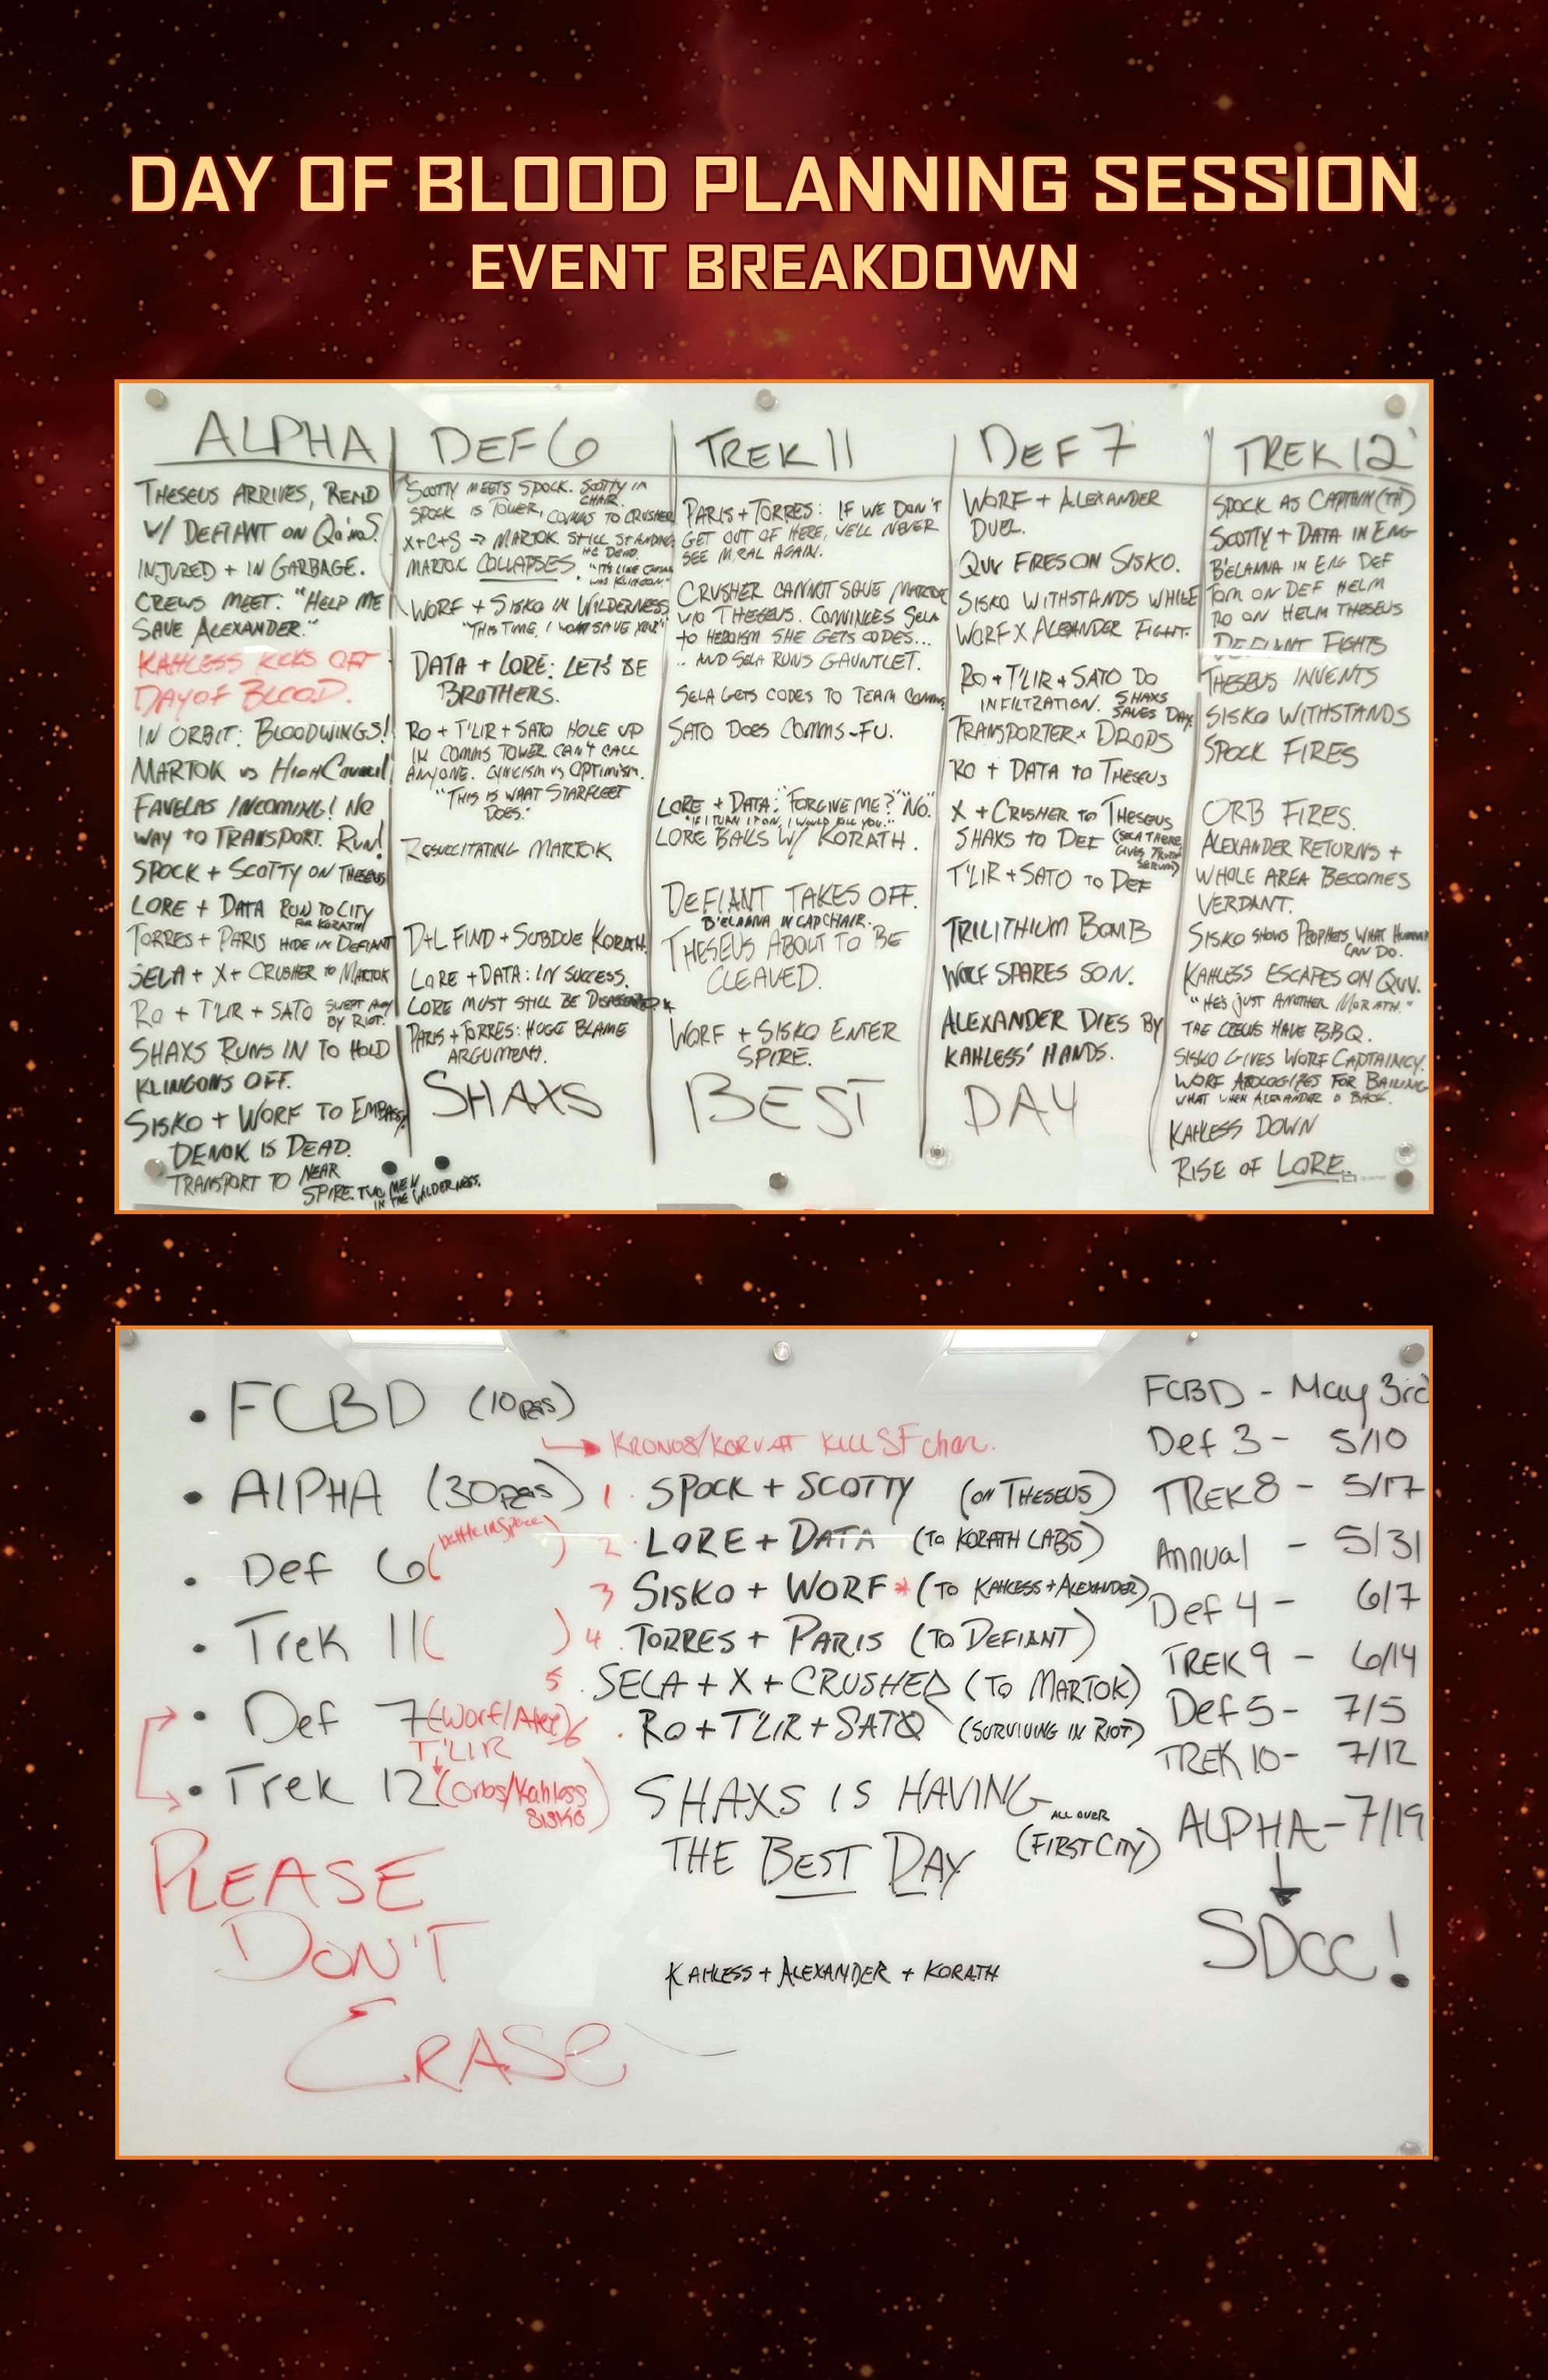 DAY OF BLOOD PLANNING SESSION
EVENT BREAKDOWN
ALPHA
THESEUS ARRIVES, REND
W/ DEFIANT ON Qo'noS.
INJURED + IN GARBAGE.
CREWS MEET: "HELP ME
SAVE ALEXANDER."
KAHLESS KICKS OFF
DAY OF BLOOD.
IN ORBIT: BLOODWINGS!
MARTOK vs HIGH COUNCIL
FAVELAS INCOMING! NO
WAY TO TRANSPORT. RUN!
SPOCK + SCOTTY ON THESEUS
LORE + DATA RUN TO CITY
FOR KORATH
TORRES + PARIS HIDE IN DEFIANT
SELA + X + CRUSHER to MARTOK
RO + T'LIR + SATO SWEPT AWAY
BY RIOT.
SHAXS RUNS IN TO HOLD
KLINGONS OFF.
SISKO + WORF TO EMBASSY
DENOK IS DEAD.
TRANSPORT TO NEAR
SPIRE. TWO MEN
IN THE WILDERNESS.
DEF 6
SCOTTY MEETS SPOCK. SCOTTY IN
CHAIR.
SPOCK IS TOWER, COMES TO CRUSHER
X+C+S → MARTOK STILL STANDING
HC DEAD.
MARTOK COLLAPSES.
WORF + SISKO IN WILDERNESS
"THIS TIME, I WON'T SAVE YOU."
DATA + LORE: LET'S BE
BROTHERS.
RO + T'LIR + SATO HOLE UP
IN COMMS TOWER CAN'T CALL
ANYONE. CYNICISM vs OPTIMISM.
"THIS IS WHAT STARFLEET
DOES."
RESUSCITATING MARTOK
D+L FIND + SUBDUE KORATH.
LORE + DATA: IN SUCCESS.
LORE MUST STILL BE
PARIS + TORRES: HUGE BLAME
ARGUMENT.
SHAXS
TREK 11
PARIS + TORRES: IF WE DON'T
GET OUT OF HERE, WE'LL NEVER
SEE MIRAL AGAIN.
CRUSHER CANNOT SAVE MARTOK
W/O THESEUS. CONVINCES SELA
TO HEROISM SHE GETS CODES...
.. AND SELA RUNS GAUNTLET.
SELA GETS CODES TO TEAM COMMS
SATO DOES COMMS-FU.
LORE + DATA: "FORGIVE ME?" "NO.
"IF I TURN IT ON, I WOULD KILL YOU."
LORE BAILS W/ KORATH.
DEFIANT TAKES OFF.
B'ELANNA IN CAP CHAIR.
THESEUS ABOUT TO BE
CLEAVED.
WORF + SISKO ENTER
SPIRE.
BEST
DEF 7
WORF + ALEXANDER
DUEL.
QUV FIRES ON SISKO.
SISKO WITHSTANDS WHILE
WORF X ALEXANDER FIGHT.
RO + T'LIR + SATO DO
INFILTRATION. SHAXS
SAVES DAY.
TRANSPORTER x DROPS
RO + DATA TO THESEUS
X + CRUSHER TO THESEUS
SHAXS TO DEF (SELA THERE
GIVES TRUTH
SERUM)
T'LIR + SATO TO DEF
TRILITHIUM BOMB
WORF SPARES SON.
ALEXANDER DIES BY
KAHLESS' HANDS.
DAY
TREK 12
SPOCK AS CAPTAIN (TH)
SCOTTY + DATA IN ENG
B'ELANNA IN ENG DEF
TOM ON DEF HELM
RO ON HELM THESEUS
DEFIANT FIGHTS
THESEUS INVENTS
SISKO WITHSTANDS
SPOCK FIRES
ORB FIRES.
ALEXANDER RETURNS +
WHOLE AREA BECOMES
VERDANT.
SISKO SHOWS PROPHETS WHAT HUMANS
CAN DO.
KAHLESS ESCAPES ON QUV.
"HE'S JUST ANOTHER MORATH."
THE CREWS HAVE BBQ.
SISKO GIVES WORF CAPTAINCY.
WORF APOLOGIZES FOR BAILING
WHAT WHEN ALEXANDER IS BACK.
KAHLESS DOWN
RISE OF LORE.
• FCBD (10 pgs)
→ KRONOS/KORVAT KILL SF char.
• ALPHA (30 pgs)
• Def 6 (battle in space)
• Trek 11 ( )
• Def 7 (Worf/Alex)
T'LIR
• Trek 12 (Orbs/Kahless
SISKO)
PLEASE
DON'T
ERASE
1 SPOCK + SCOTTY (ON THESEUS)
2. LORE + DATA (TO KORATH LABS)
3 SISKO + WORF * (TO KAHLESS + ALEXANDER)
4. TORRES + PARIS (TO DEFIANT)
5. SELA + X + CRUSHER (TO MARTOK)
6. RO + T'LIR + SATO (SURVIVING IN RIOT)
SHAXS IS HAVING
THE BEST DAY
ALL OVER
(FIRST CITY)
KAHLESS + ALEXANDER + KORATH
FCBD - May 3rd
Def 3 - 5/10
TREK 8 - 5/17
Annual - 5/31
Def 4 - 6/7
TREK 9 - 6/14
Def 5 - 7/5
TREK 10 - 7/12
ALPHA - 7/19
SDCC!